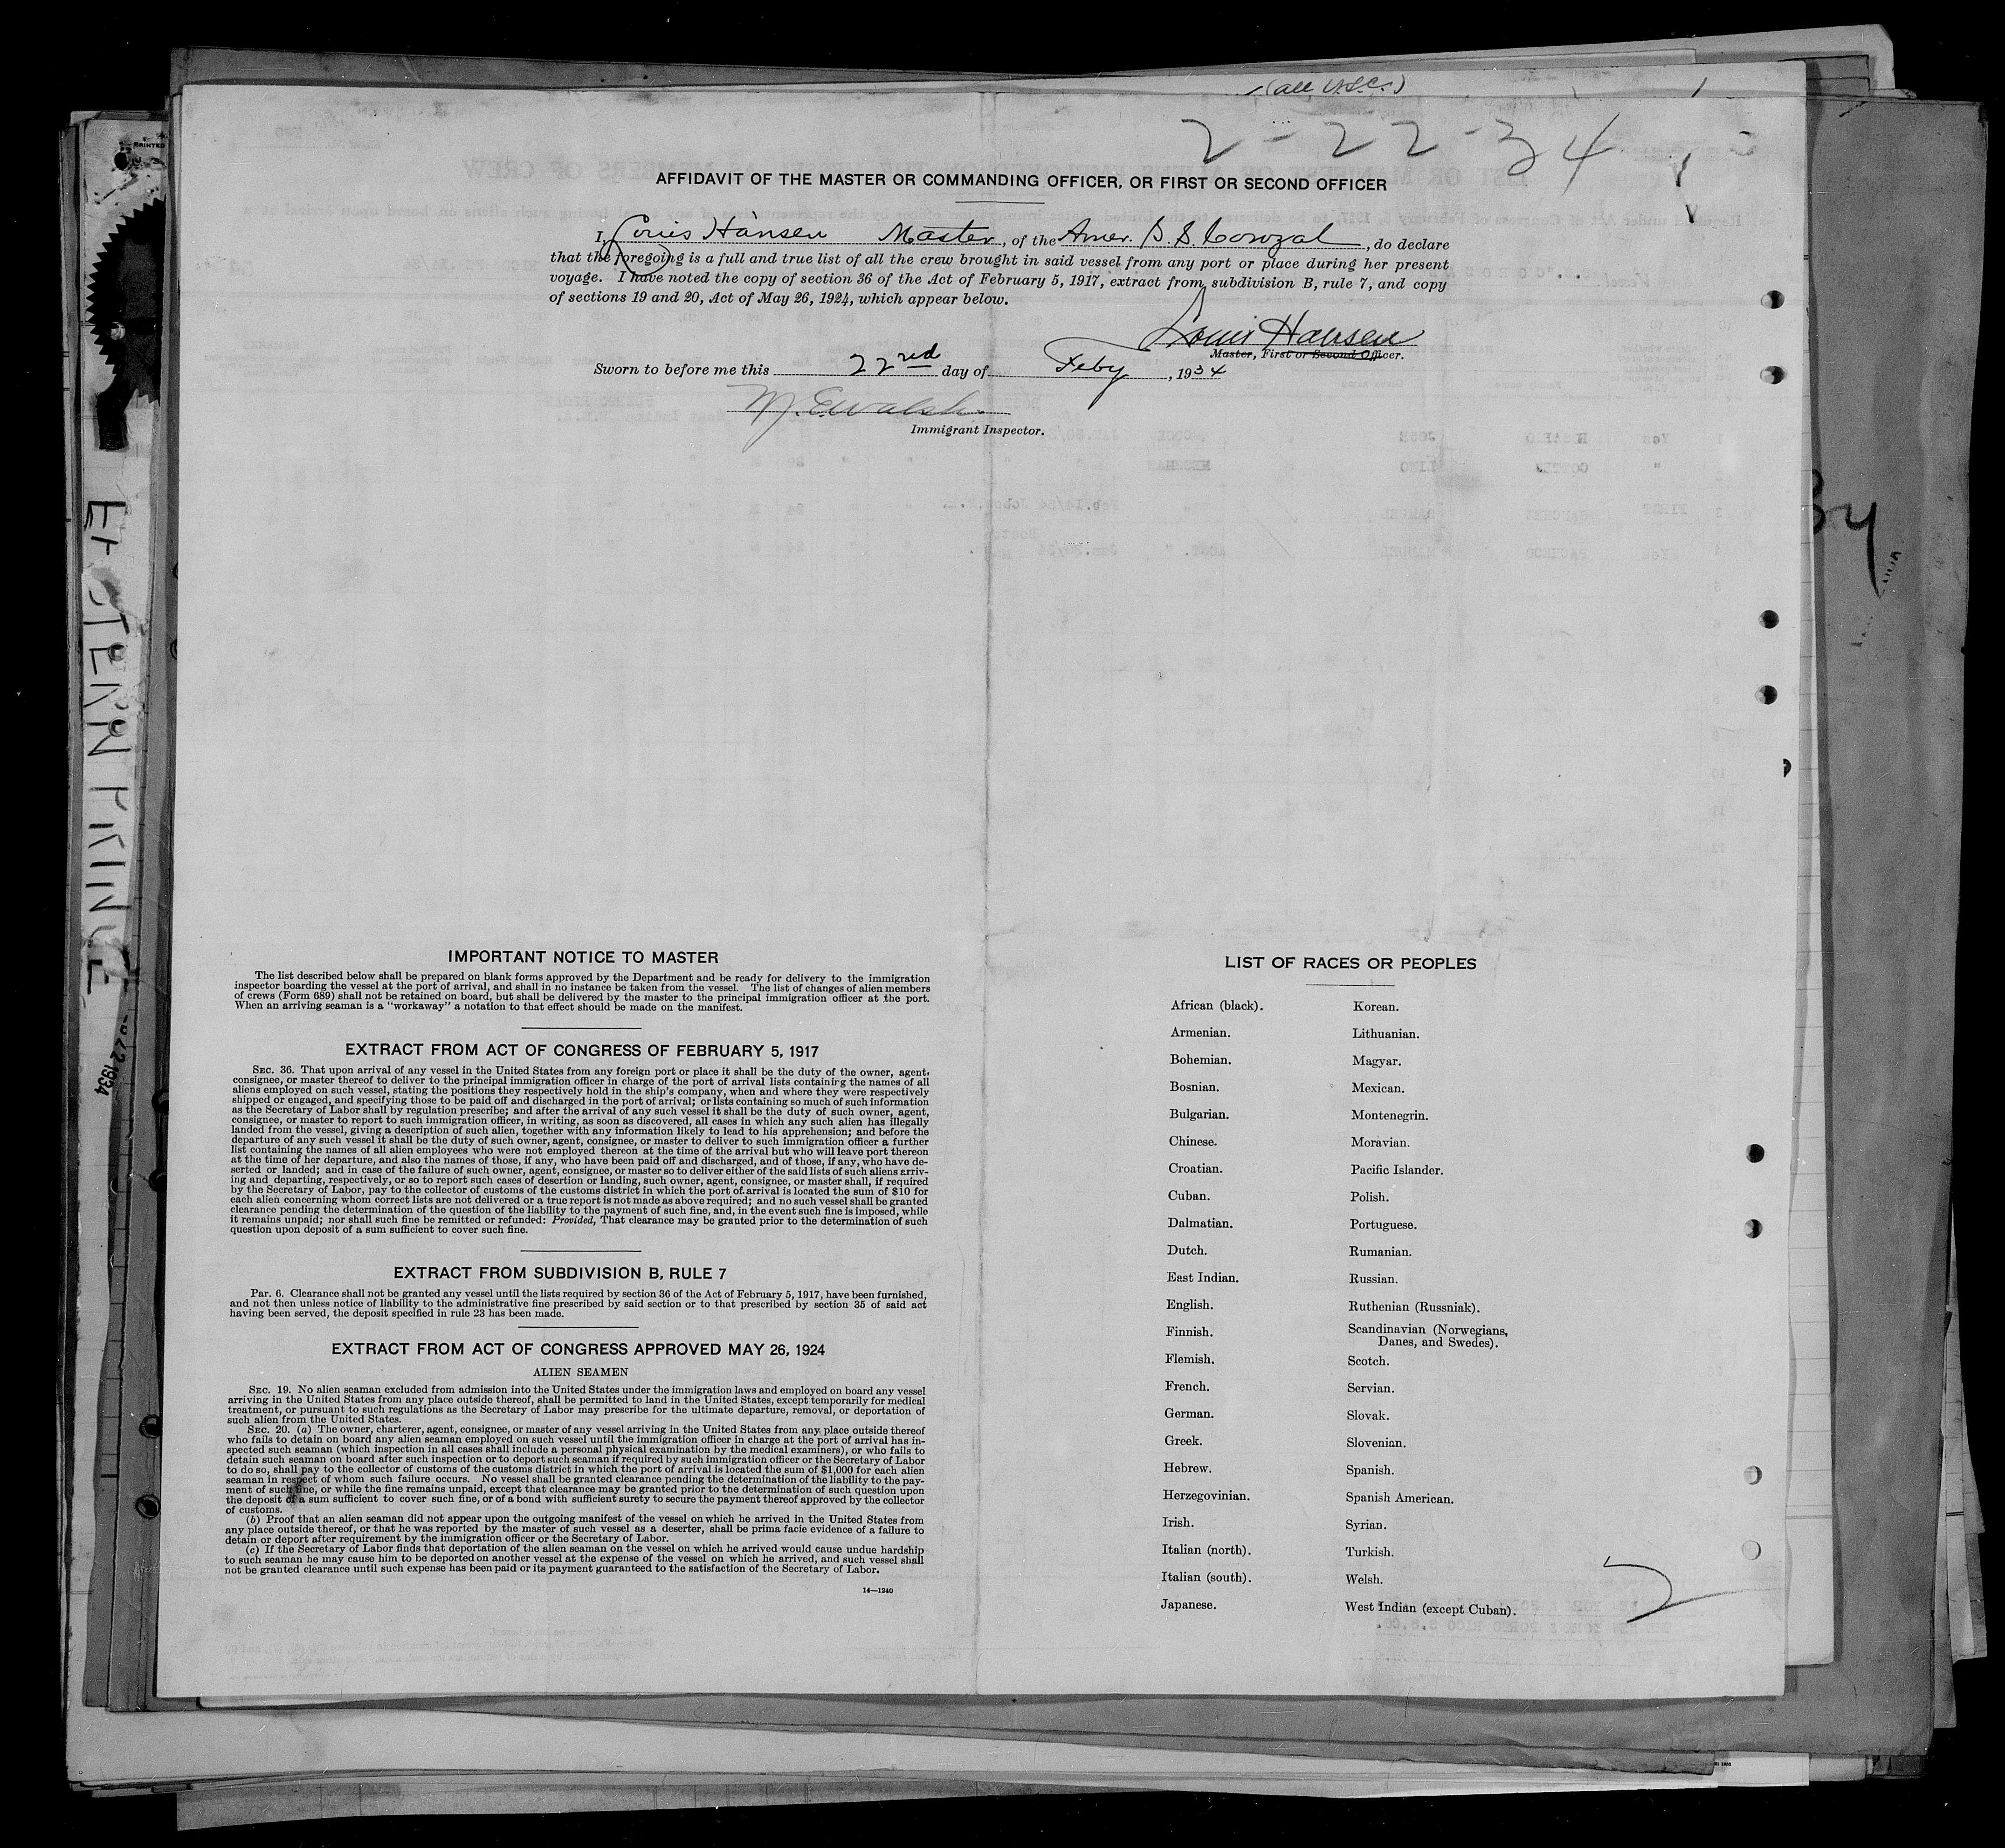 (all U.S.C.)
2-22-34
AFFIDAVIT OF THE MASTER OR COMMANDING OFFICER, OR FIRST OR SECOND OFFICER
I, Louis Hansen Master, of the Amer. S.S. Corozal, do declare
that the foregoing is a full and true list of all the crew brought in said vessel from any port or place during her present
voyage. I have noted the copy of section 36 of the Act of February 5, 1917, extract from subdivision B, rule 7, and copy
of sections 19 and 20, Act of May 26, 1924, which appear below.
Louis Hansen
Master, First or Second Officer.
Sworn to before me this 22nd day of Feby, 1934
M.E. Walsh
Immigrant Inspector.
34
EASTERN PRINCE
1934
IMPORTANT NOTICE TO MASTER
The list described below shall be prepared on blank forms approved by the Department and be ready for delivery to the immigration
inspector boarding the vessel at the port of arrival, and shall in no instance be taken from the vessel. The list of changes of alien members
of crews (Form 689) shall not be retained on board, but shall be delivered by the master to the principal immigration officer at the port.
When an arriving seaman is a "workaway" a notation to that effect should be made on the manifest.
EXTRACT FROM ACT OF CONGRESS OF FEBRUARY 5, 1917
SEC. 36. That upon arrival of any vessel in the United States from any foreign port or place it shall be the duty of the owner, agent,
consignee, or master thereof to deliver to the principal immigration officer in charge of the port of arrival lists containing the names of all
aliens employed on such vessel, stating the positions they respectively hold in the ship's company, when and where they were respectively
shipped or engaged, and specifying those to be paid off and discharged in the port of arrival; or lists containing so much of such information
as the Secretary of Labor shall by regulation prescribe; and after the arrival of any such vessel it shall be the duty of such owner, agent,
consignee, or master to report to such immigration officer, in writing, as soon as discovered, all cases in which any such alien has illegally
landed from the vessel, giving a description of such alien, together with any information likely to lead to his apprehension; and before the
departure of any such vessel it shall be the duty of such owner, agent, consignee, or master to deliver to such immigration officer a further
list containing the names of all alien employees who were not employed thereon at the time of the arrival but who will leave port thereon
at the time of her departure, and also the names of those, if any, who have been paid off and discharged, and of those, if any, who have de-
serted or landed; and in case of the failure of such owner, agent, consignee, or master so to deliver either of the said lists of such aliens arriv-
ing and departing, respectively, or so to report such cases of desertion or landing, such owner, agent, consignee, or master shall, if required
by the Secretary of Labor, pay to the collector of customs of the customs district in which the port of arrival is located the sum of $10 for
each alien concerning whom correct lists are not delivered or a true report is not made as above required; and no such vessel shall be granted
clearance pending the determination of the question of the liability to the payment of such fine, and, in the event such fine is imposed, while
it remains unpaid; nor shall such fine be remitted or refunded: Provided, That clearance may be granted prior to the determination of such
question upon deposit of a sum sufficient to cover such fine.
EXTRACT FROM SUBDIVISION B, RULE 7
Par. 6. Clearance shall not be granted any vessel until the lists required by section 36 of the Act of February 5, 1917, have been furnished,
and not then unless notice of liability to the administrative fine prescribed by said section or to that prescribed by section 35 of said act
having been served, the deposit specified in rule 23 has been made.
EXTRACT FROM ACT OF CONGRESS APPROVED MAY 26, 1924
ALIEN SEAMEN
SEC. 19. No alien seaman excluded from admission into the United States under the immigration laws and employed on board any vessel
arriving in the United States from any place outside thereof, shall be permitted to land in the United States, except temporarily for medical
treatment, or pursuant to such regulations as the Secretary of Labor may prescribe for the ultimate departure, removal, or deportation of
such alien from the United States.
SEC. 20. (a) The owner, charterer, agent, consignee, or master of any vessel arriving in the United States from any place outside thereof
who fails to detain on board any alien seaman employed on such vessel until the immigration officer in charge at the port of arrival has in-
spected such seaman (which inspection in all cases shall include a personal physical examination by the medical examiners), or who fails to
detain such seaman on board after such inspection or to deport such seaman if required by such immigration officer or the Secretary of Labor
to do so, shall pay to the collector of customs of the customs district in which the port of arrival is located the sum of $1,000 for each alien
seaman in respect of whom such failure occurs. No vessel shall be granted clearance pending the determination of the liability to the pay-
ment of such fine, or while the fine remains unpaid, except that clearance may be granted prior to the determination of such question upon
the deposit of a sum sufficient to cover such fine, or of a bond with sufficient surety to secure the payment thereof approved by the collector
of customs.
(b) Proof that an alien seaman did not appear upon the outgoing manifest of the vessel on which he arrived in the United States from
any place outside thereof, or that he was reported by the master of such vessel as a deserter, shall be prima facie evidence of a failure to
detain or deport after requirement by the immigration officer or the Secretary of Labor.
(c) If the Secretary of Labor finds that deportation of the alien seaman on the vessel on which he arrived would cause undue hardship
to such seaman he may cause him to be deported on another vessel at the expense of the vessel on which he arrived, and such vessel shall
not be granted clearance until such expense has been paid or its payment guaranteed to the satisfaction of the Secretary of Labor.
14—1240
LIST OF RACES OR PEOPLES
African (black).
Armenian.
Bohemian.
Bosnian.
Bulgarian.
Chinese.
Croatian.
Cuban.
Dalmatian.
Dutch.
East Indian.
English.
Finnish.
Flemish.
French.
German.
Greek.
Hebrew.
Herzegovinian.
Irish.
Italian (north).
Italian (south).
Japanese.
Korean.
Lithuanian.
Magyar.
Mexican.
Montenegrin.
Moravian.
Pacific Islander.
Polish.
Portuguese.
Rumanian.
Russian.
Ruthenian (Russniak).
Scandinavian (Norwegians,
Danes, and Swedes).
Scotch.
Servian.
Slovak.
Slovenian.
Spanish.
Spanish American.
Syrian.
Turkish.
Welsh.
West Indian (except Cuban).
2